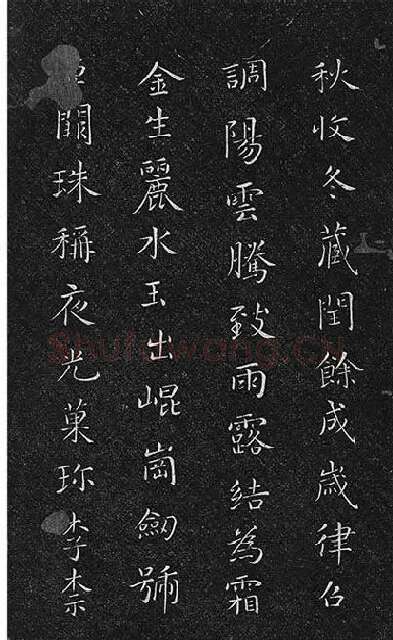 秋收冬蔵閏餘成歲律召
調陽雲騰致雨露結為霜
金生麗水玉出崐崗劒號
闕珠稱夜光菓珎李柰
shufawang.cn